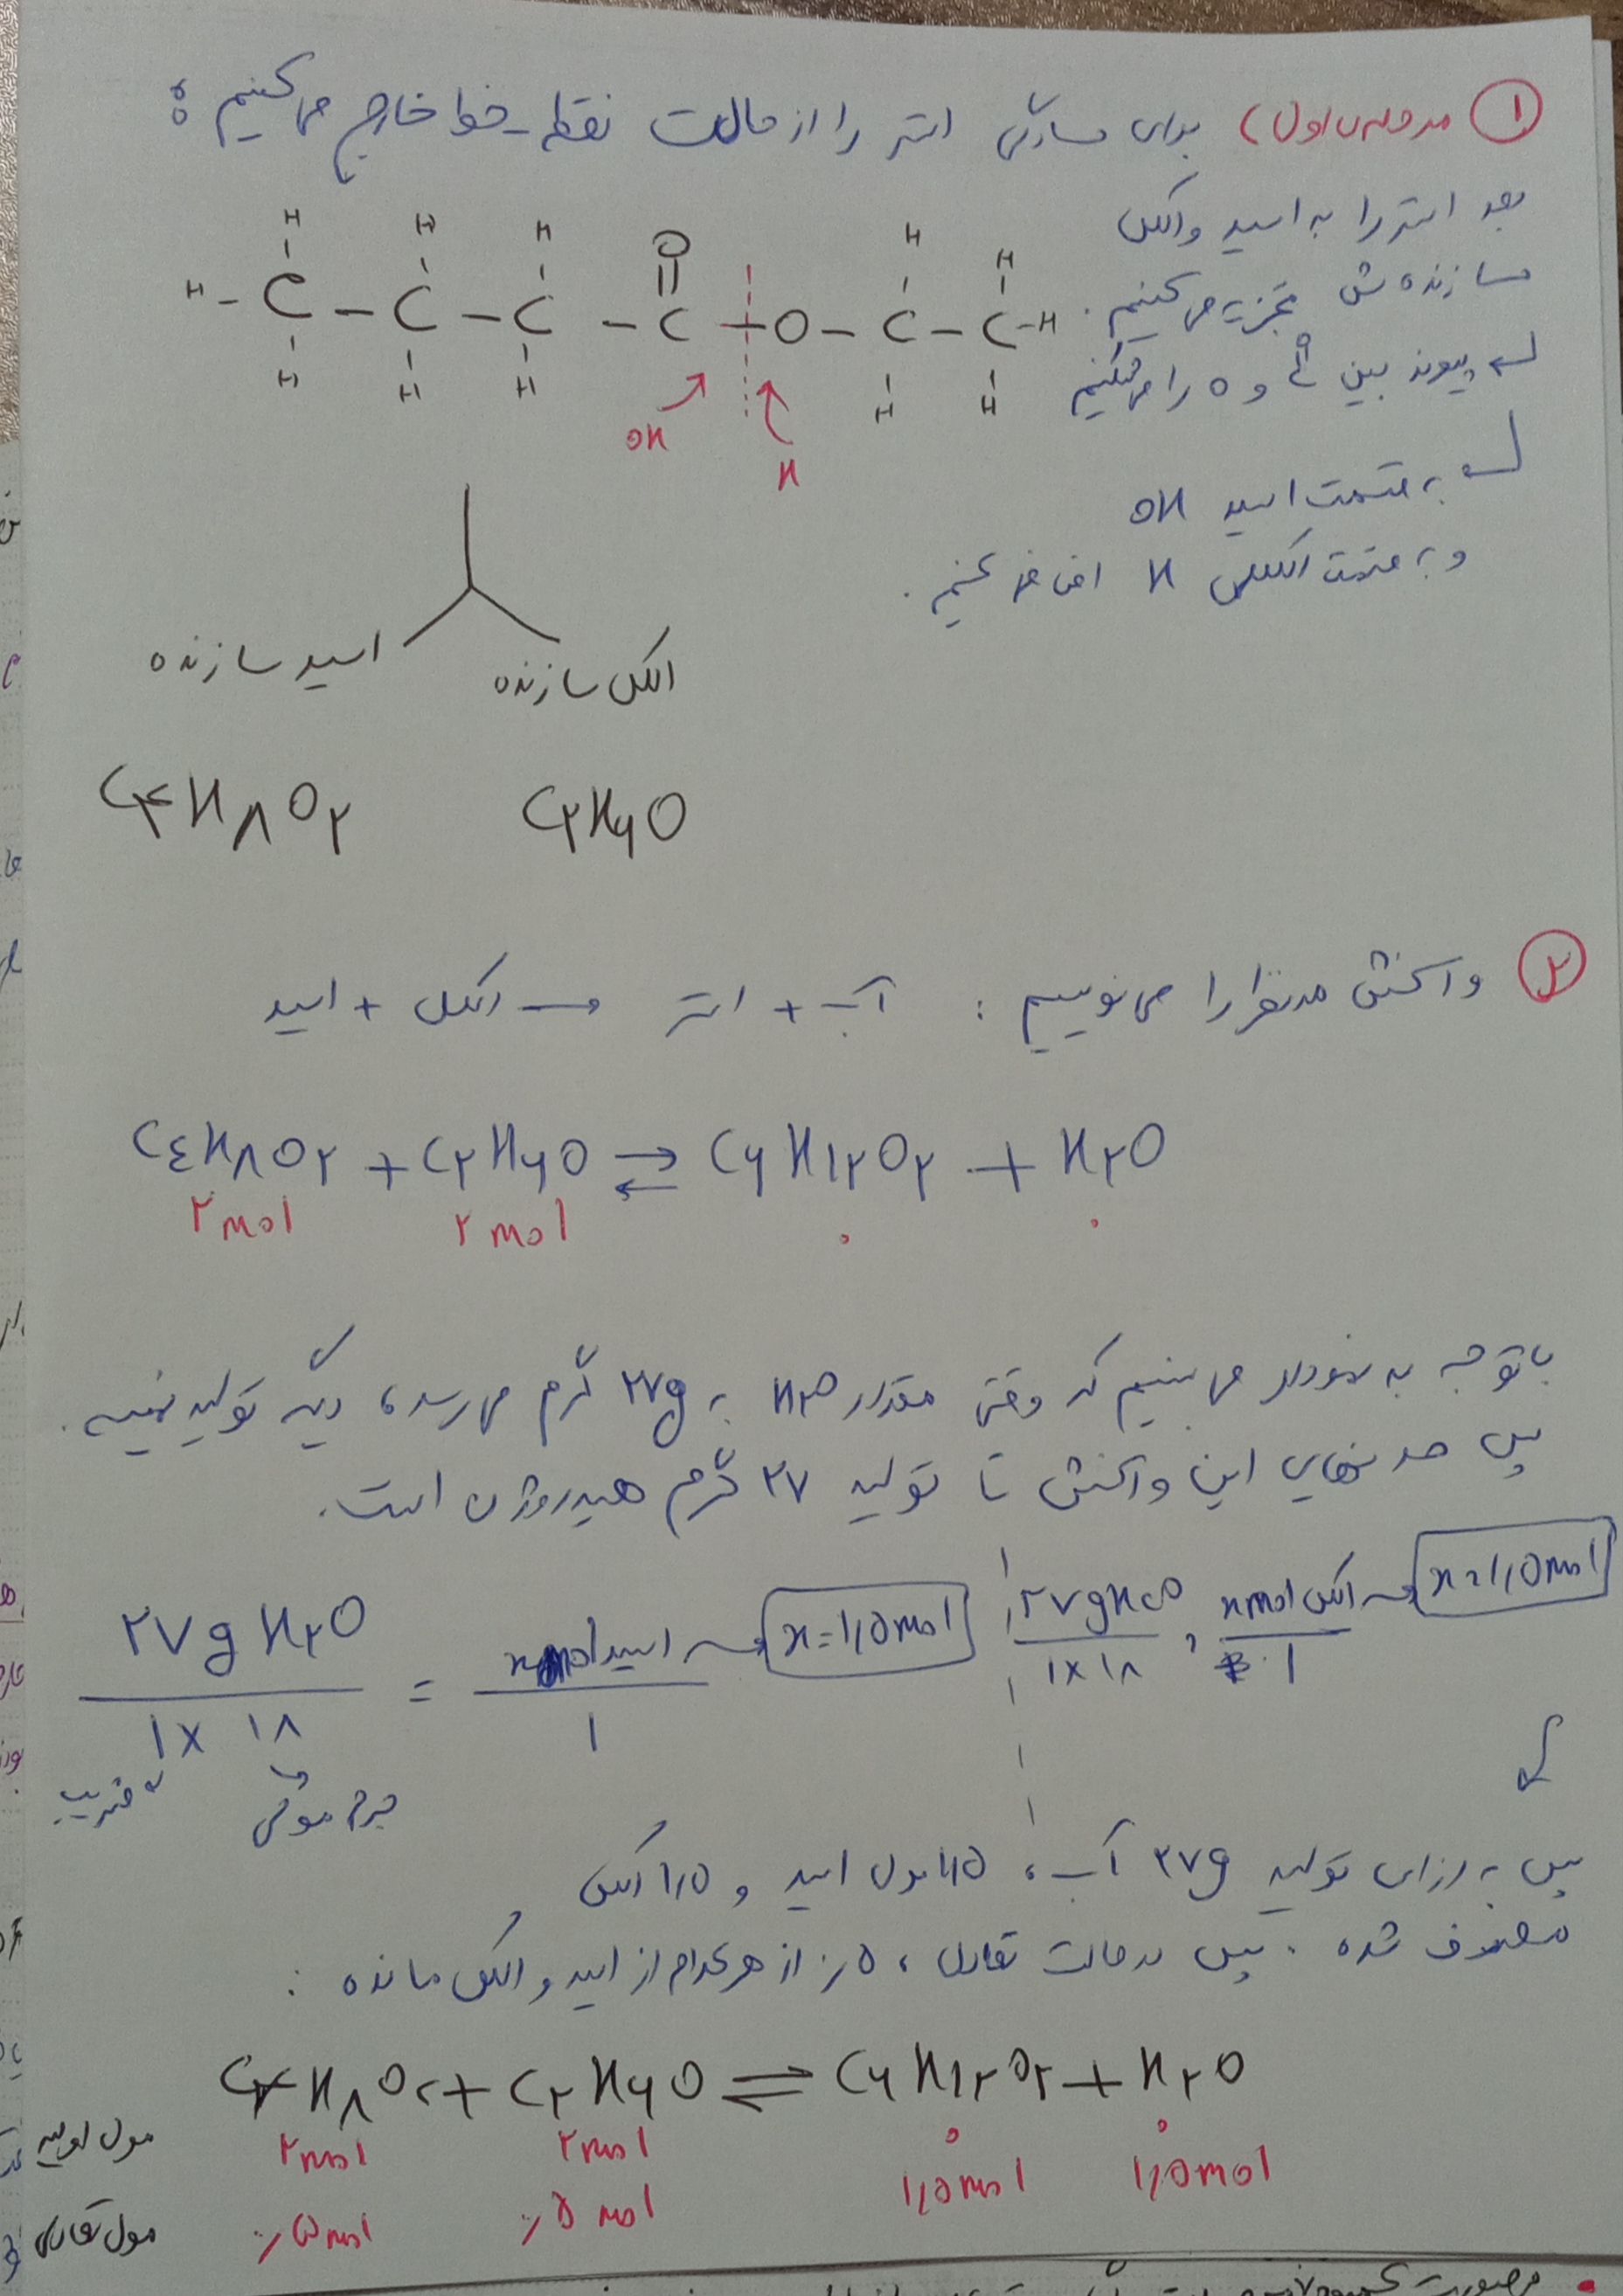 ① مرحله‌ی اول) برای سادگی استر را از حالت نقطه-خط خارج می‌کنیم :
بعد استر را به اسید و الکل
سازنده ش تجزیه می‌کنیم.
پیوند بین C و O را می‌شکنیم
به قسمت اسید OH
و به قسمت الکلی H اضافه می‌کنیم.
H H H O H H
H - C - C - C - C - O - C - C - H
H H H H H
OH H
اسید سازنده الکل سازنده
C۴H۸O۲ C۲H۶O
② واکنش مدنظر را می‌نویسیم : آب + استر → الکل + اسید
C٤H۸O۲ + C۲H۶O ⇌ C۶H۱۲O۲ + H۲O
۲mol ۲mol ۰ ۰
باتوجه به نمودار می‌بینیم که وقتی مقدار H۲O به ۲۷g گرم می‌رسد، دیگه تولید نمیشه.
پس حد نهایی این واکنش تا تولید ۲۷ گرم هیدروژن است.
۲۷g H۲O / ۱×۱۸ = x mol اسید / ۱ → x = ۱,۵ mol
۲۷g H۲O / ۱×۱۸ , x mol الکل / ۱ → x = ۱,۵ mol
ضریب جرم مولی
پس به ازای تولید ۲۷g آب، ۱,۵ مول اسید و ۱,۵ الکل
مصرف شده. پس در حالت تعادل، ۰,۵ از هرکدام از اسید و الکل مانده :
C۴H۸O۲ + C۲H۶O ⇌ C۶H۱۲O۲ + H۲O
مول اولیه ۲mol ۲mol ۰ ۰
مول تعادلی ۰,۵mol ۰,۵ mol ۱,۵mol ۱,۵mol